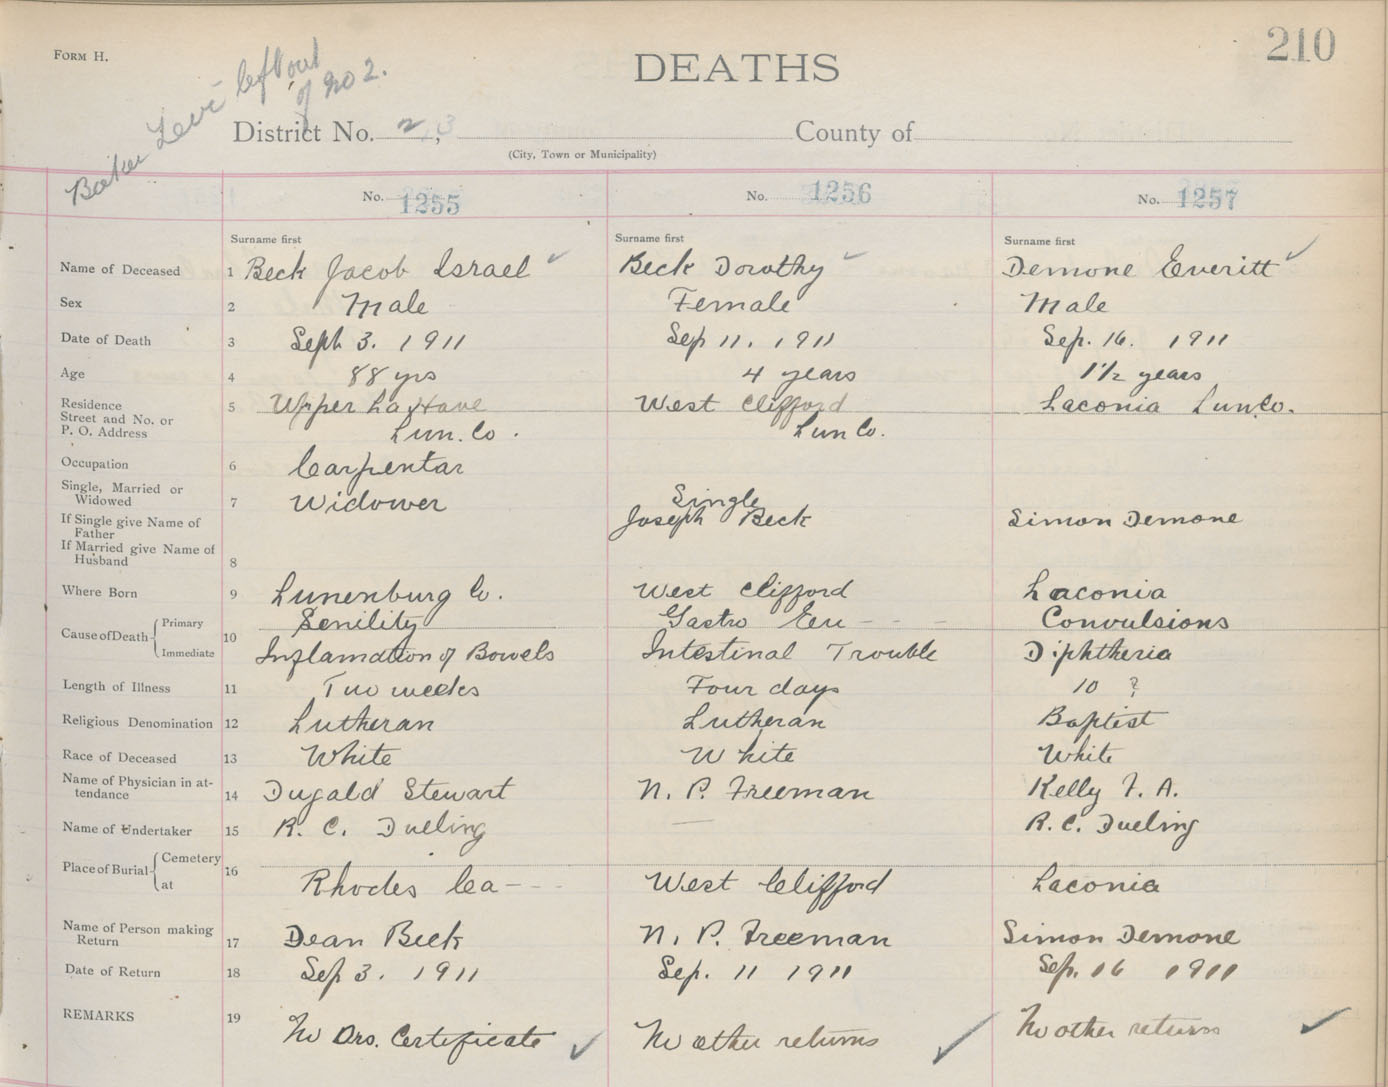 FORM H.
Baker Levi left out
of No 2.
DEATHS
210
District No. 2, 3 County of
(City, Town or Municipality)
No. 1255 No. 1256 No. 1257
Surname first Surname first Surname first
Name of Deceased 1 Beck Jacob Israel Beck Dorothy Demone Everitt
Sex 2 Male Female Male
Date of Death 3 Sept 3. 1911 Sep 11. 1911 Sep. 16. 1911
Age 4 88 yrs 4 years 1 1/2 years
Residence 5 Upper La Have West Clifford Laconia Lun. Co.
Street and No. or
P. O. Address Lun. Co. Lun Co.
Occupation 6 Carpentar
Single, Married or
Widowed 7 Widower Single
If Single give Name of
Father Joseph Beck Simon Demone
If Married give Name of
Husband 8
Where Born 9 Lunenburg Co. West Clifford Laconia
Cause of Death 10
Primary Senility Gastro Convulsions
Immediate Inflamation of Bowels Intestinal Trouble Diphtheria
Length of Illness 11 Two weeks Four days 10 ?
Religious Denomination 12 Lutheran Lutheran Baptist
Race of Deceased 13 White White White
Name of Physician in at-
tendance 14 Dugald Stewart N. P. Freeman Kelly F. A.
Name of Undertaker 15 R. C. Dueling — R. C. Dueling
Place of Burial 16
Cemetery
at Rhodes Ca--- West Clifford Laconia
Name of Person making
Return 17 Dean Beck N. P. Freeman Simon Demone
Date of Return 18 Sep 3. 1911 Sep. 11 1911 Sep. 16 1911
REMARKS 19 No Drs. Certificate No other returns No other returns